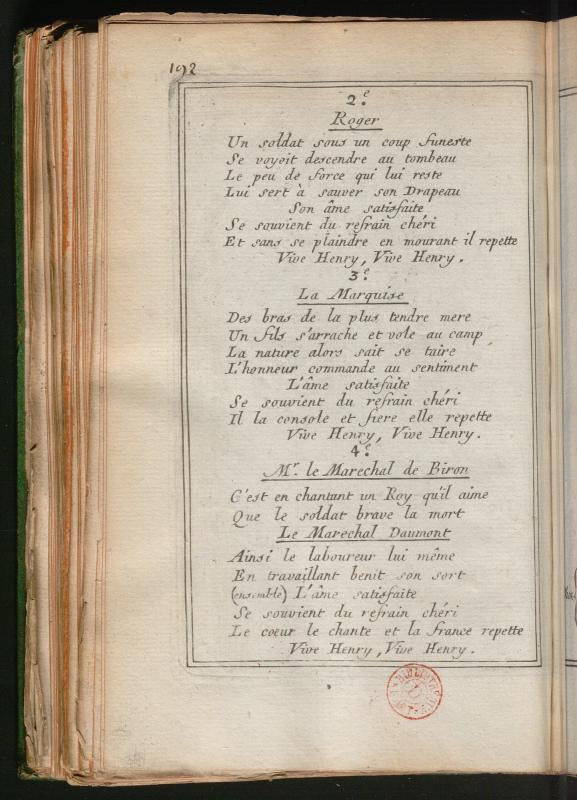 192
2.e
Roger
Un soldat sous un coup funeste
Se voyoit descendre au tombeau
Le peu de force qui lui reste
Lui sert à sauver son Drapeau
Son âme satisfaite
Se souvient du refrain chéri
Et sans se plaindre en mourant il repette
Vive Henry, Vive Henry.
3.e
La Marquise
Des bras de la plus tendre mere
Un fils s'arrache et vole au camp
La nature alors sait se taire
L'honneur commande au sentiment
L'âme satisfaite
Se souvient du refrain chéri
Il la console et fiere elle repette
Vive Henry, Vive Henry.
4.e
Mr. le Marechal de Biron
C'est en chantant un Roy qu'il aime
Que le soldat brave la mort
Le Marechal Daumont
Ainsi le laboureur lui même
En travaillant benit son sort
(ensemble) L'âme satisfaite
Se souvient du refrain chéri
Le coeur le chante et la france repette
Vive Henry, Vive Henry.